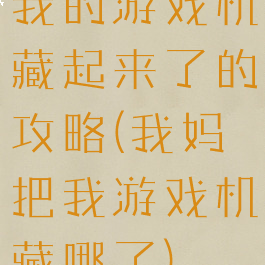 我的游戏机
藏起来了的
攻略(我妈
把我游戏机
藏哪了)